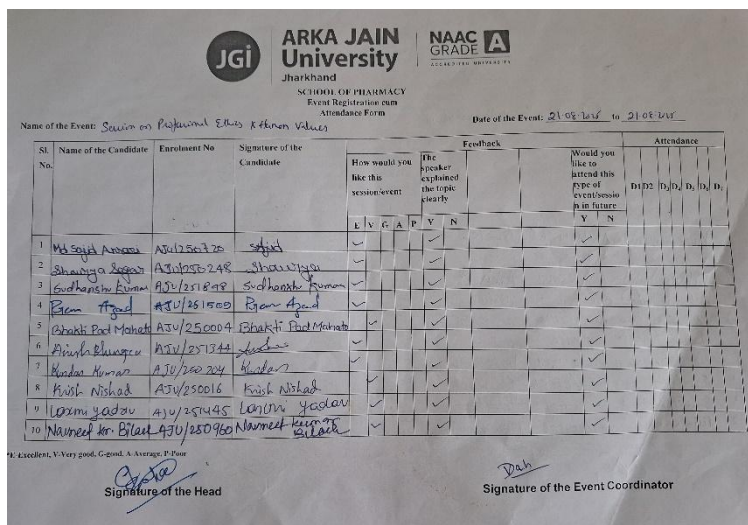 JGi
ARKA JAIN
University
Jharkhand
NAAC
GRADE A
ACCREDITED UNIVERSITY
SCHOOL OF PHARMACY
Event Registration cum
Attendance Form
Name of the Event: Session on Professional Ethics & Human Values
Date of the Event: 21-08-2025 to 21-08-2025
Sl. No. Name of the Candidate Enrolment No Signature of the Candidate Feedback Attendance
How would you like this session/event
The speaker explained the topic clearly
Would you like to attend this type of event/session in future
D1 D2 D3 D4 D5 D6 D7
E V G A P Y N Y N
1 Md Sajid Ansari AJU/250720 Sajid
2 Shaurya Sagar AJU/250248 Shaurya
3 Sudhanshu Kumar AJU/251848 Sudhanshu Kumar
4 Prem Azad AJU/251509 Prem Azad
5 Bhakti Pad Mahato AJU/250004 Bhakti Pad Mahato
6 AJU/251344
7 Kundan Kumar AJU/250204 Kundan
8 Krish Nishad AJU/250016 Krish Nishad
9 Laxmi Yadav AJU/251445 Laxmi Yadav
10 Navneet kr. AJU/250960 Navneet Kumar
*E-Excellent, V-Very good, G-good, A-Average, P-Poor
Signature of the Head
Signature of the Event Coordinator